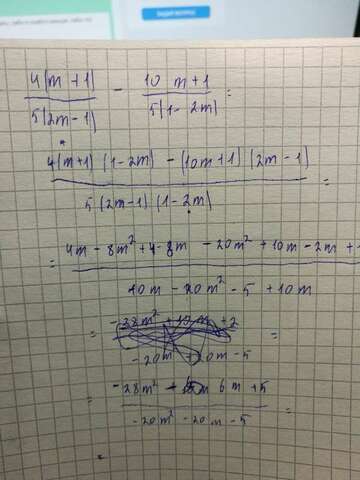 4(m+1)/5(2m-1) - 10 m+1/5(1-2m) =
4(m+1)(1-2m) - (10m+1)(2m-1)/5(2m-1)(1-2m) =
= 4m - 8m² + 4 - 8m - 20m² + 10m - 2m +/10m - 20m² - 5 + 10m
= -28m² + 10m + 2/-20m² + 20m - 5 =
= -28m² + 6m + 5/-20m² - 20m - 5 =